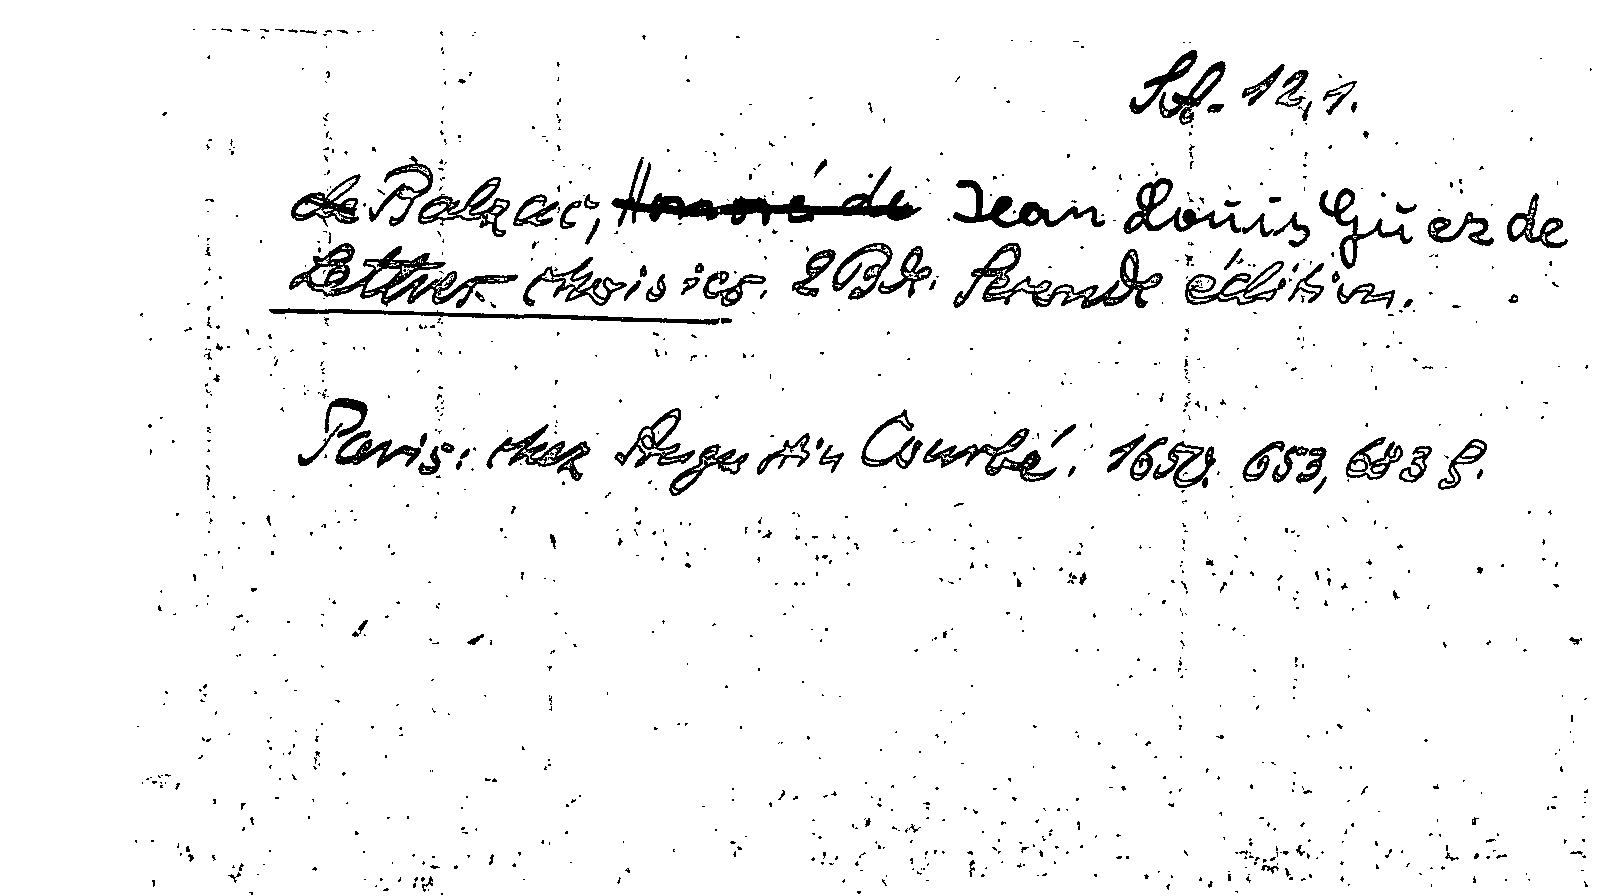 Sf. 12,1.
de Balzac, Honoré de Jean Louis Guez de
Lettres choisies. 2 Bde. Seconde édition.
Paris: chez Augustin Courbé. 1650. 653, 683 S.